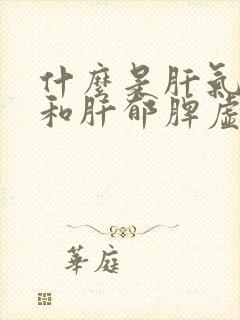 什麼是肝氣
和肝郁脾虛
華庭